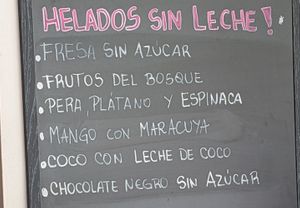 HELADOS SIN LECHE!
• FRESA SIN AZÚCAR
• FRUTOS DEL BOSQUE
• PERA, PLÁTANO Y ESPINACA
• MANGO CON MARACUYA
• COCO CON LECHE DE COCO
• CHOCOLATE NEGRO SIN AZÚCAR